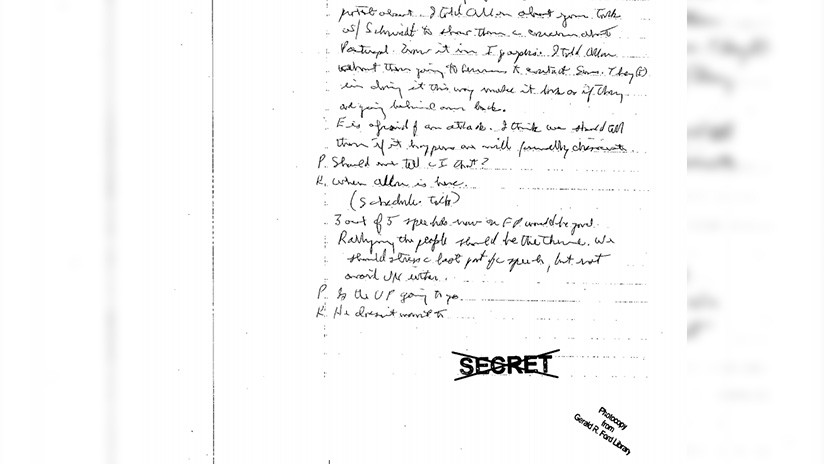 about. I told Allon about your talk
w/ Schmidt to show them c concern about
Portugal. I told Allon
about them going to to contact
in doing it this way make it look as if they
are going behind our back.
E is afraid of an attack. I think we should tell
them if it happens we will
P. Should we tell I that?
K. When Allon is here.
(Schedule talk)
3 out of 5 speeches now on FP would be good.
Rallying the people should be the theme. We
should stress c last part of c speech, but not
avoid UN either.
P. Is the VP going to go.
K. He doesn't want to
SECRET
Photocopy
from
Gerald R. Ford Library